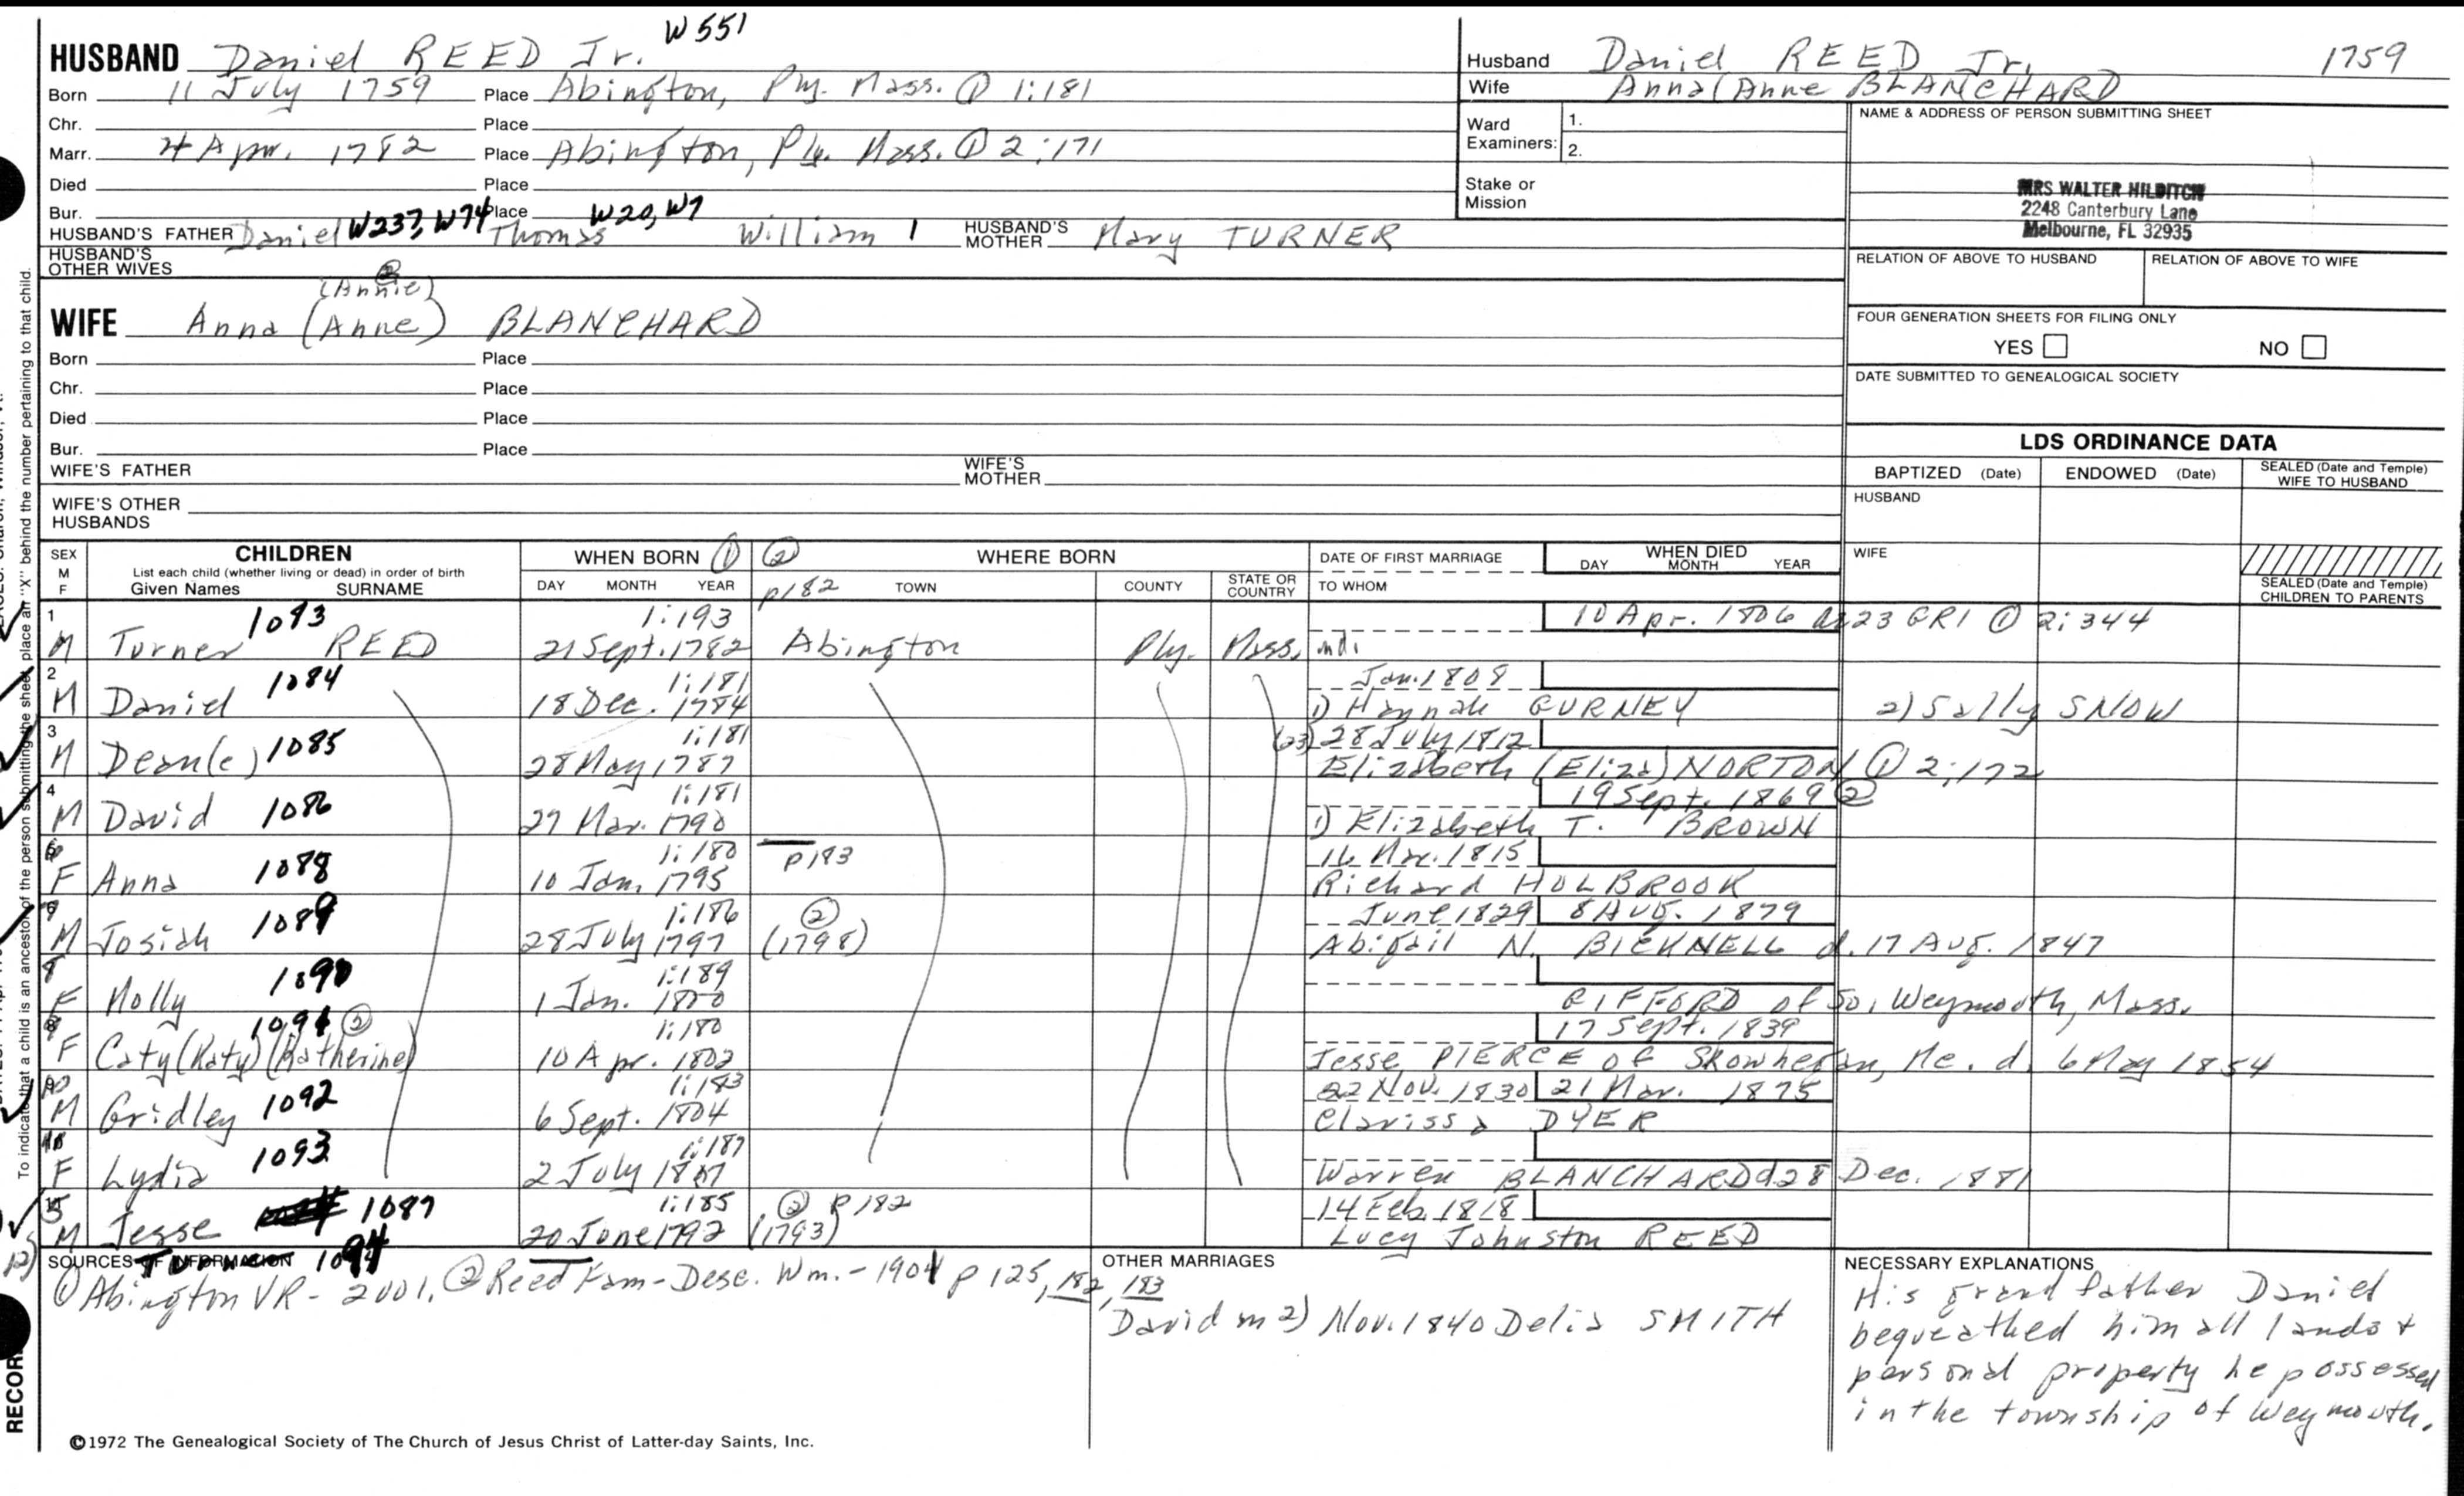 W551
HUSBAND Daniel REED Jr.
Born 11 July 1759 Place Abington, Ply. Mass. ① 1:181
Chr. Place
Marr. 4 Apr. 1782 Place Abington, Ply. Mass. ① 2:171
Died Place
Bur. Place
HUSBAND'S FATHER Daniel W237, W74 Thomas W20, W7 William 1 HUSBAND'S MOTHER Mary TURNER
HUSBAND'S OTHER WIVES
②
(Annie)
WIFE Anna (Anne) BLANCHARD
Born Place
Chr. Place
Died Place
Bur. Place
WIFE'S FATHER WIFE'S MOTHER
WIFE'S OTHER HUSBANDS
Husband Daniel REED Jr. 1759
Wife Anna (Anne BLANCHARD
Ward Examiners: 1.
2.
Stake or Mission
NAME & ADDRESS OF PERSON SUBMITTING SHEET
MRS WALTER HILDITCH
2248 Canterbury Lane
Melbourne, FL 32935
RELATION OF ABOVE TO HUSBAND RELATION OF ABOVE TO WIFE
FOUR GENERATION SHEETS FOR FILING ONLY
YES NO
DATE SUBMITTED TO GENEALOGICAL SOCIETY
LDS ORDINANCE DATA
BAPTIZED (Date) ENDOWED (Date) SEALED (Date and Temple) WIFE TO HUSBAND
HUSBAND
WIFE
SEALED (Date and Temple) CHILDREN TO PARENTS
SEX M F CHILDREN
List each child (whether living or dead) in order of birth
Given Names SURNAME
WHEN BORN ① DAY MONTH YEAR
② p182 WHERE BORN TOWN COUNTY STATE OR COUNTRY
DATE OF FIRST MARRIAGE
TO WHOM
WHEN DIED DAY MONTH YEAR
1 1083 1:193 10 Apr. 1806 ae 23 GR1 ① 2:344
M Turner REED 21 Sept. 1782 Abington Ply. Mass.
2 1084 1:181 Jan. 1808
M Daniel 18 Dec. 1784 1) Hannah GURNEY 2) Sally SNOW
3 1085 1:181 28 July 1812
M Dean(e) 28 May 1787 Elizabeth (Eliza) NORTON ① 2:172
4 1086 1:181 19 Sept. 1869 ②
M David 27 Mar. 1790 1) Elizabeth T. BROWN
6 1088 1:180 p183 1815
F Anna 10 Jan. 1795 Richard HOLBROOK
7 1089 1:186 ② June 1829 8 Aug. 1879
M Josiah 28 July 1797 (1798) Abigail N. BICKNELL d. 17 Aug. 1847
8 1090 1:189
F Molly 1 Jan. 1800 GIFFORD of So. Weymouth, Mass.
1091 ② 1:180 17 Sept. 1839
F Caty (Katy) (Katherine) 10 Apr. 1802 Jesse PIERCE of Skowhegan, Me. d. 6 May 1854
10 1092 1:183 22 Nov. 1830 21 Mar. 1875
M Gridley 6 Sept. 1804 Clarissa DYER
11 1093 1:187
F Lydia 2 July 1807 Warren BLANCHARD d 28 Dec. 1881
5 1087 1:185 ② p182 14 Feb. 1818
M Jesse 20 June 1792 (1793) Lucy Johnston REED
12) Turner 1094
SOURCES OF INFORMATION
① Abington VR - 2001. ② Reed Fam - Desc. Wm. - 1901 p 125, 182, 183
OTHER MARRIAGES
David m 2) Nov. 1840 Delia SMITH
NECESSARY EXPLANATIONS
His grand father Daniel
bequeathed him all lands +
personal property he possessed
in the township of Weymouth.
©1972 The Genealogical Society of The Church of Jesus Christ of Latter-day Saints, Inc.
To indicate that a child is an ancestor of the person submitting the sheet, place an "X" behind the number pertaining to that child.
RECOR